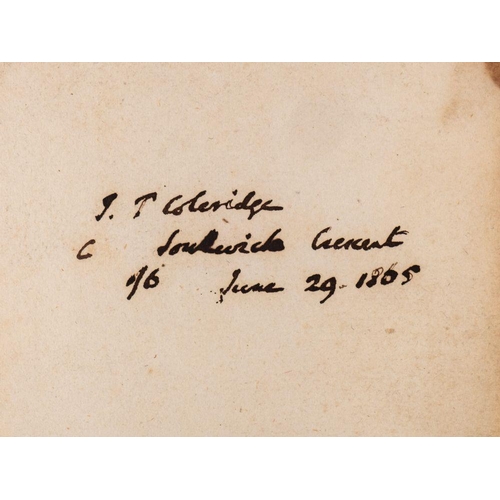 J. T Coleridge
6 Southwick Crescent
June 29. 1865